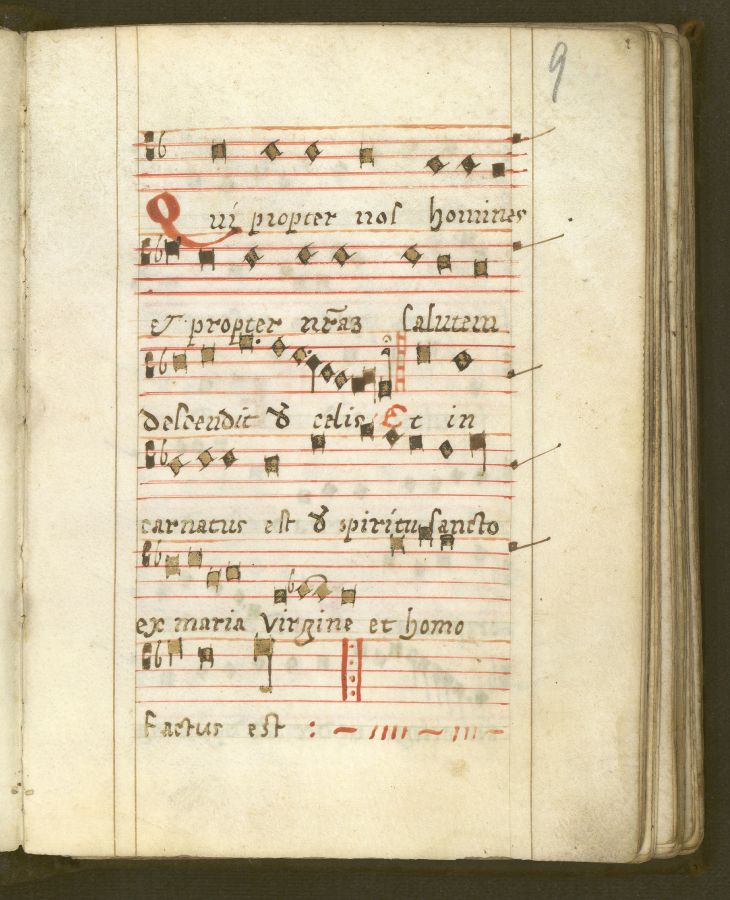 9
Qui propter nos homines
et propter nr̃aȝ salutem
descendit d celis Et in
carnatus est d spiritu sancto
ex maria virgine et homo
Factus est :